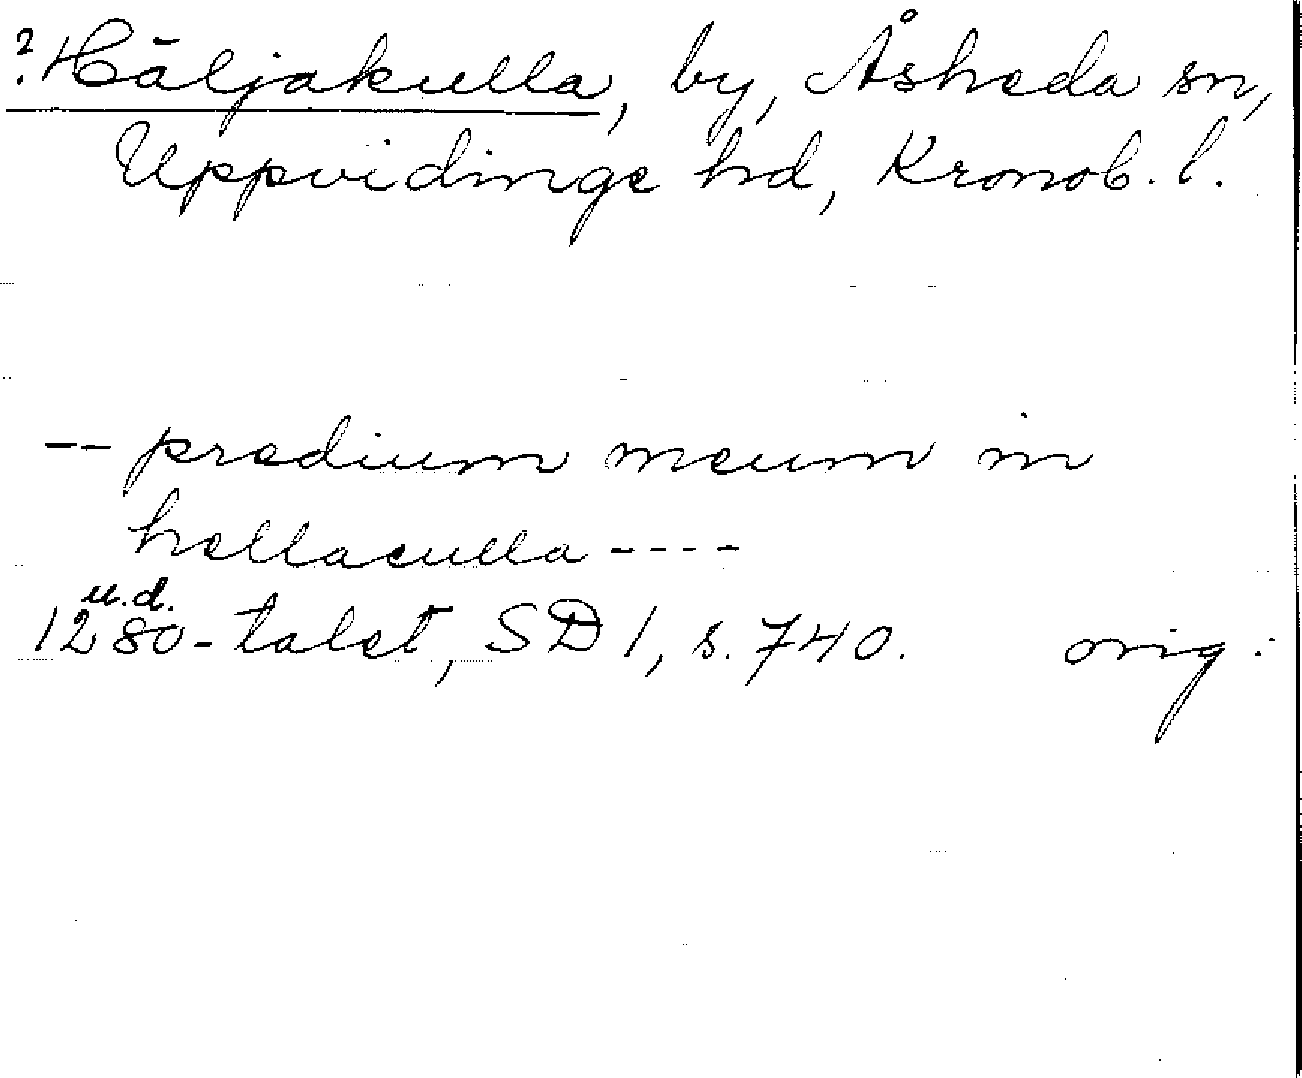 ? Häljakulla, by, Åsheda sn,
Uppvidinge hd, Kronob. l.
-- predium meum in
hellaculla ----
u.d.
1280-talet, SD 1, s. 740. orig.